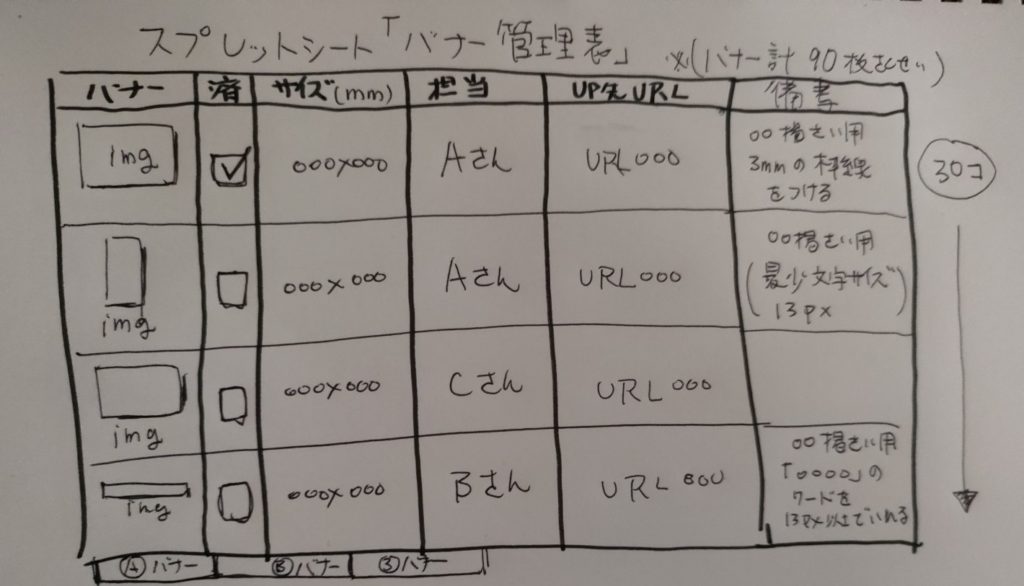 スプレットシート「バナー管理表」 ※(バナー計90枚さくせい)
バナー 済 サイズ(mm) 担当 UP先URL 備書
img 000×000 Aさん URL000 00掲さい用
3mmの枠線
をつける
30コ
img 000×000 Aさん URL000 00掲さい用
(最少文字サイズ)
13px
img 000×000 Cさん URL000
img 000×000 Bさん URL000 00掲さい用
「0000」の
ワードを
13px以上でいれる
Ⓐバナー Ⓑバナー ③バナー